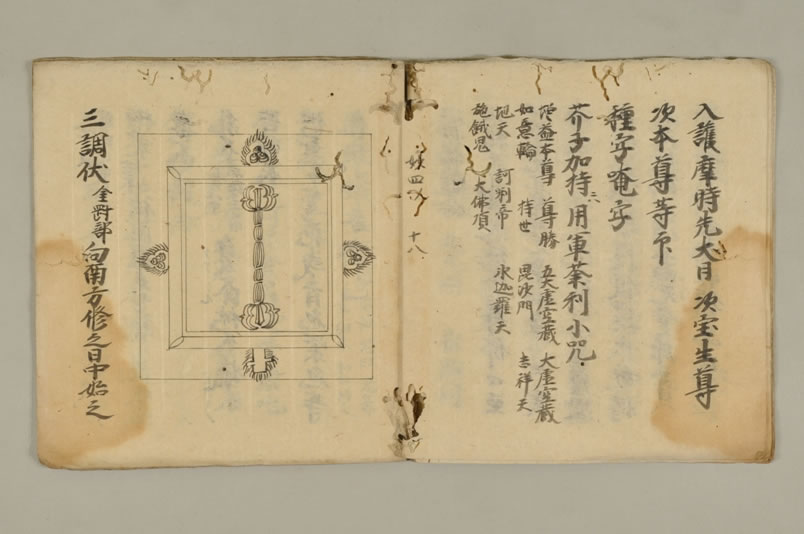 入護摩時先大日 次宝生尊
次本尊等印
種字唵字
芥子加持ニハ用軍荼利小咒
増益本尊 尊勝 五大虚空蔵 大虚空蔵
如意輪 持世 毘沙門 吉祥天
地天 訶利帝 氷迦羅天
施餓鬼 大佛頂
十八
三調伏 金剛部 向南方修之日中始之